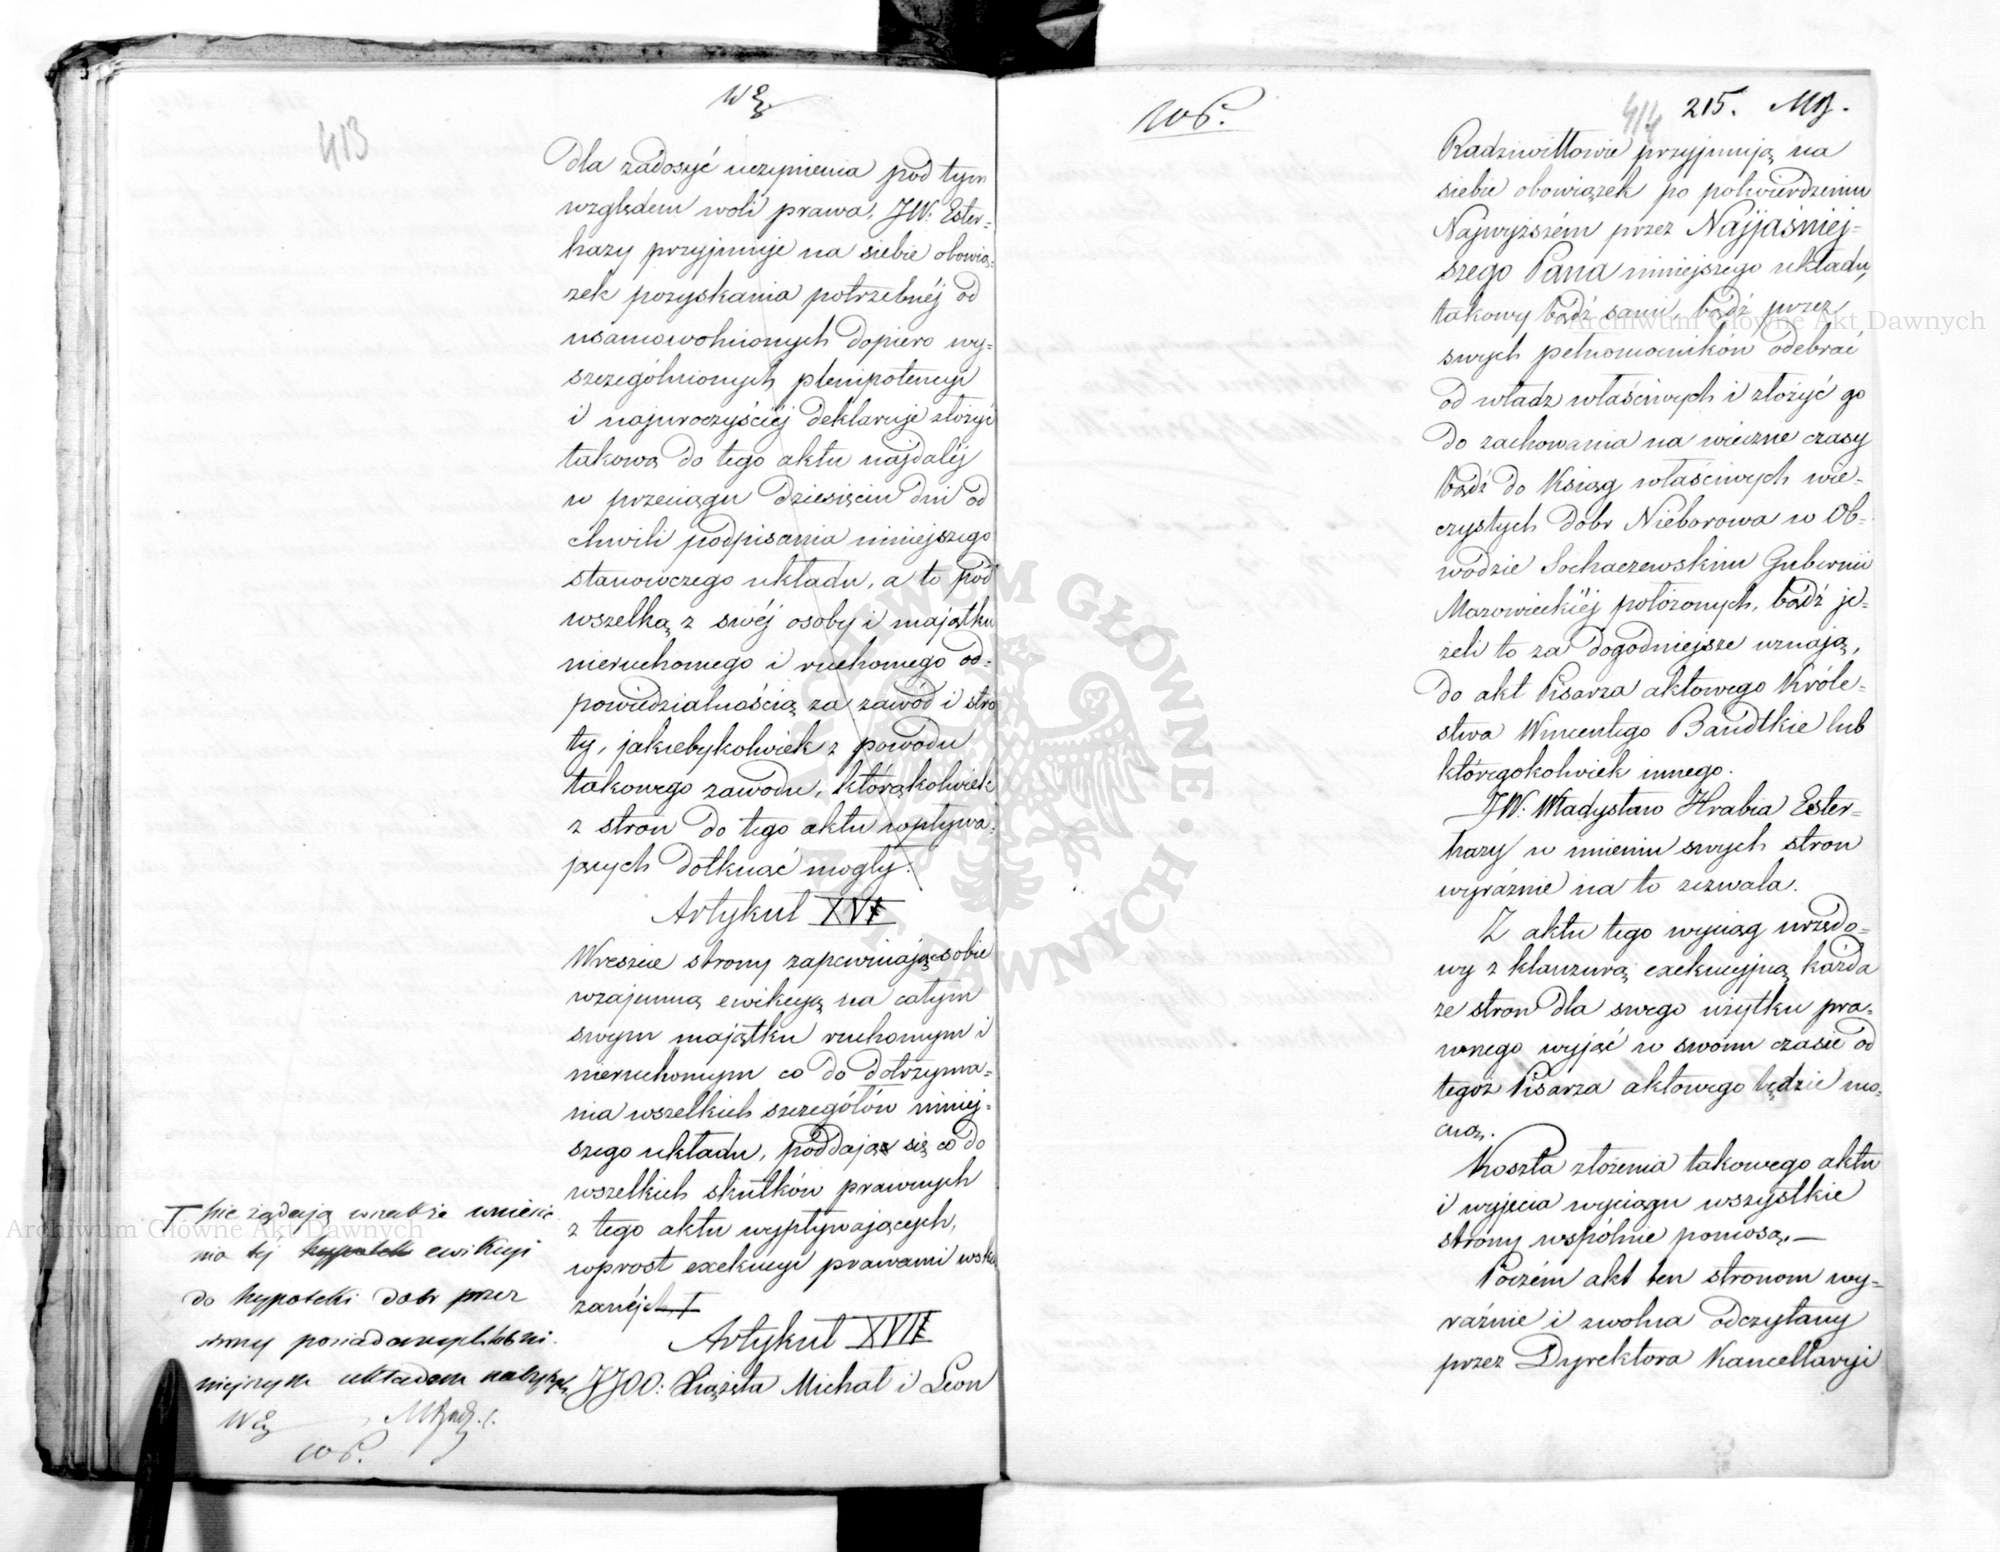 413
dla zadosyć uczynienia pod tym
względem woli prawa, JW: Ester-
hazy przyjmuje na siebie obowią-
zek pozyskania potrzebnéj od
usamowolnionych dopiero wy-
szczególnionych plenipotencyi
i najuroczyściéj deklaruje złożyć
takową do tego aktu najdaléj
w przeciągu dziesięciu dni od
chwili podpisania niniejszego
stanowczego układu, a to pod
wszelką z swéj osoby i majątku
nieruchomego i ruchomego od-
powiedzialnością za zawód i stra
ty, jakiebykolwiek z powodu
takowego zawodu, którąkolwiek
z stron do tego aktu wpływa-
jących dotknąć mogły.
Artykuł XVI
Wreszcie strony zapewniają sobie
wzajemną ewikcyą na całym
swym majątku ruchomym i
nieruchomym co do dotrzyma-
nia wszelkich szczegółów niniej-
szego układu, poddając się co do
wszelkich skutków prawnych
z tego aktu wypływających,
wprost exekucyi prawami wska
zanéj
Artykuł XVII
JJOO: Xiążęta Michał i Leon
nie żądają wszakże wniesie
nia téj ewikcyi
do hypoteki dobr przez
strony posiadanych lub ni-
niejszym układem nabytych
WE
MRadz.
WB.
WB.
414 215. MR.
Radziwiłłowie przyjmują na
siebie obowiązek po potwierdzeniu
Najwyższém przez Najjaśniej-
szego Pana niniejszego układu,
takowy bądź sami, bądź przez
swych pełnomocników odebrać
od władz właściwych i złożyć go
do zachowania na wieczne czasy
bądź do Ksiąg właściwych wie-
czystych dobr Nieborowa w Ob-
wodzie Sochaczewskim Gubernii
Mazowieckiéj położonych, bądź je-
żeli to za dogodniejsze uznają,
do akt Pisarza aktowego Króle-
stwa Wincentego Bandtkie lub
któregokolwiek innego.
JW: Władysław Hrabia Ester-
hazy w imieniu swych stron
wyraźnie na to zezwala.
Z aktu tego wyciąg urzędo-
wy z klauzurą exekucyjną każda
ze stron dla swego użytku pra-
wnego wyjąć w swoim czasie od
tegoż Pisarza aktowego będzie mo-
cna.
Koszta złożenia takowego aktu
i wyjęcia wyciągu wszystkie
strony wspólnie poniosą.—
Poczém akt ten stronom wy-
raźnie i zwolna odczytany
przez Dyrektora Kancellaryi
Archiwum Główne Akt Dawnych
Archiwum Główne Akt Dawnych
ARCHIWUM GŁÓWNE · AKT DAWNYCH ·